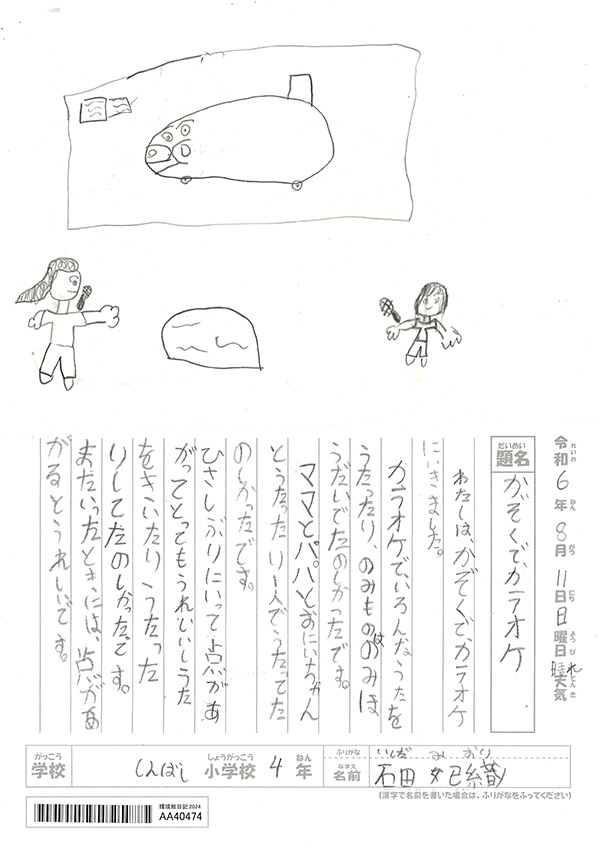 令和6年8月11日日曜日 晴れ 天気
れいわ ねん がつ にち ようび てんき
だいめい
題名 かぞくで、カラオケ
わたしは、かぞくで、カラオケ
にいきました。
カラオケで、いろんなうたを
うたったり、のみもののみほ
は
うだいでたのしかったです。
ママとパパとおにいちゃん
とうたったり一人でうたってた
のしかったです。
ひさしぶりにいって点があ
がってとってもうれしいしうた
をきいたりうたった
りしてたのしかったです。
まだいったときには、点があ
がるとうれしいです。
がっこう しょうがっこう ねん
学校 しんばし 小学校 4年
ふりがな いしだ みおり
なまえ
名前 石田 妃織
(漢字で名前を書いた場合は、ふりがなをふってください)
環境絵日記2024
AA40474